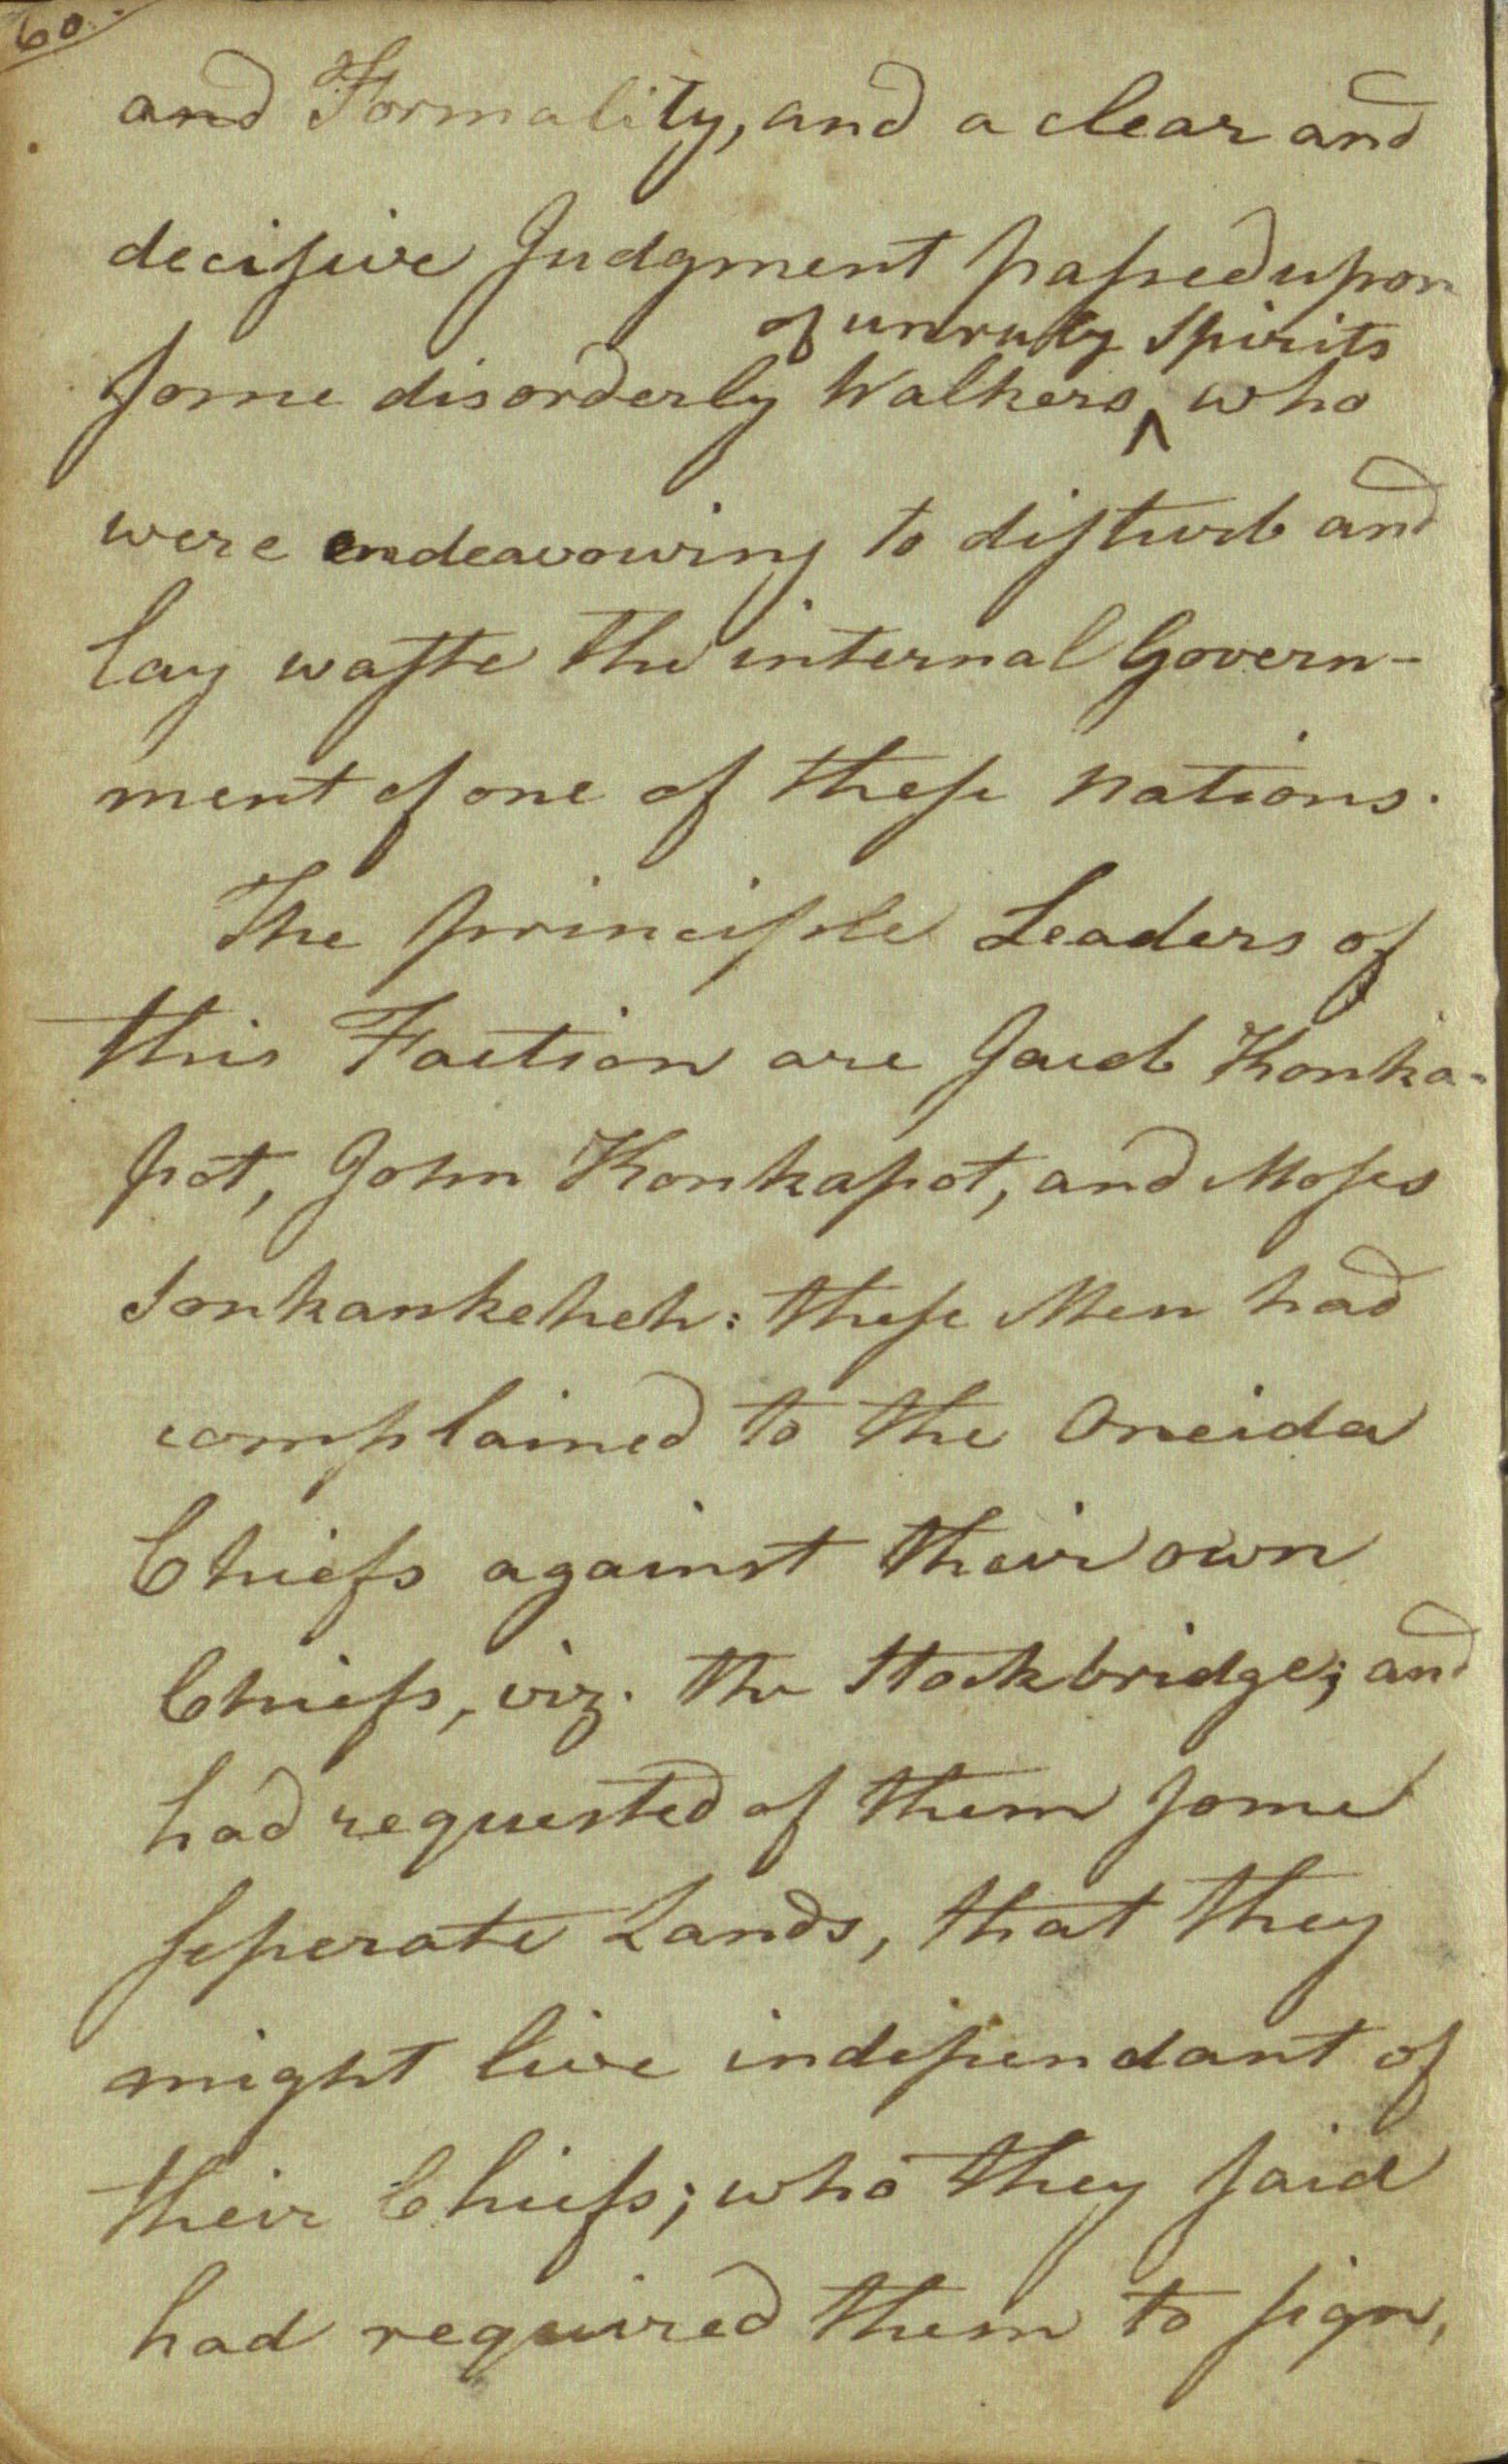 60.
and Formality, and a clear and
decisive Judgment passed upon
of unruly Spirits
some disorderly Walkers, ^ who
were endeavouring to disturb and
lay waste the internal Govern-
ment of one of these nations.
The principle Leaders of
this Faction are Jacob Konka-
pot, John Konkapot, and Moses
Sonkankeheh: these Men had
complained to the Oneida
Chiefs against their own
Chiefs, viz. the Stockbridge; and
had requested of them some
seperate Lands, that they
might live independant of
their Chiefs; who they said
had required them to sign,